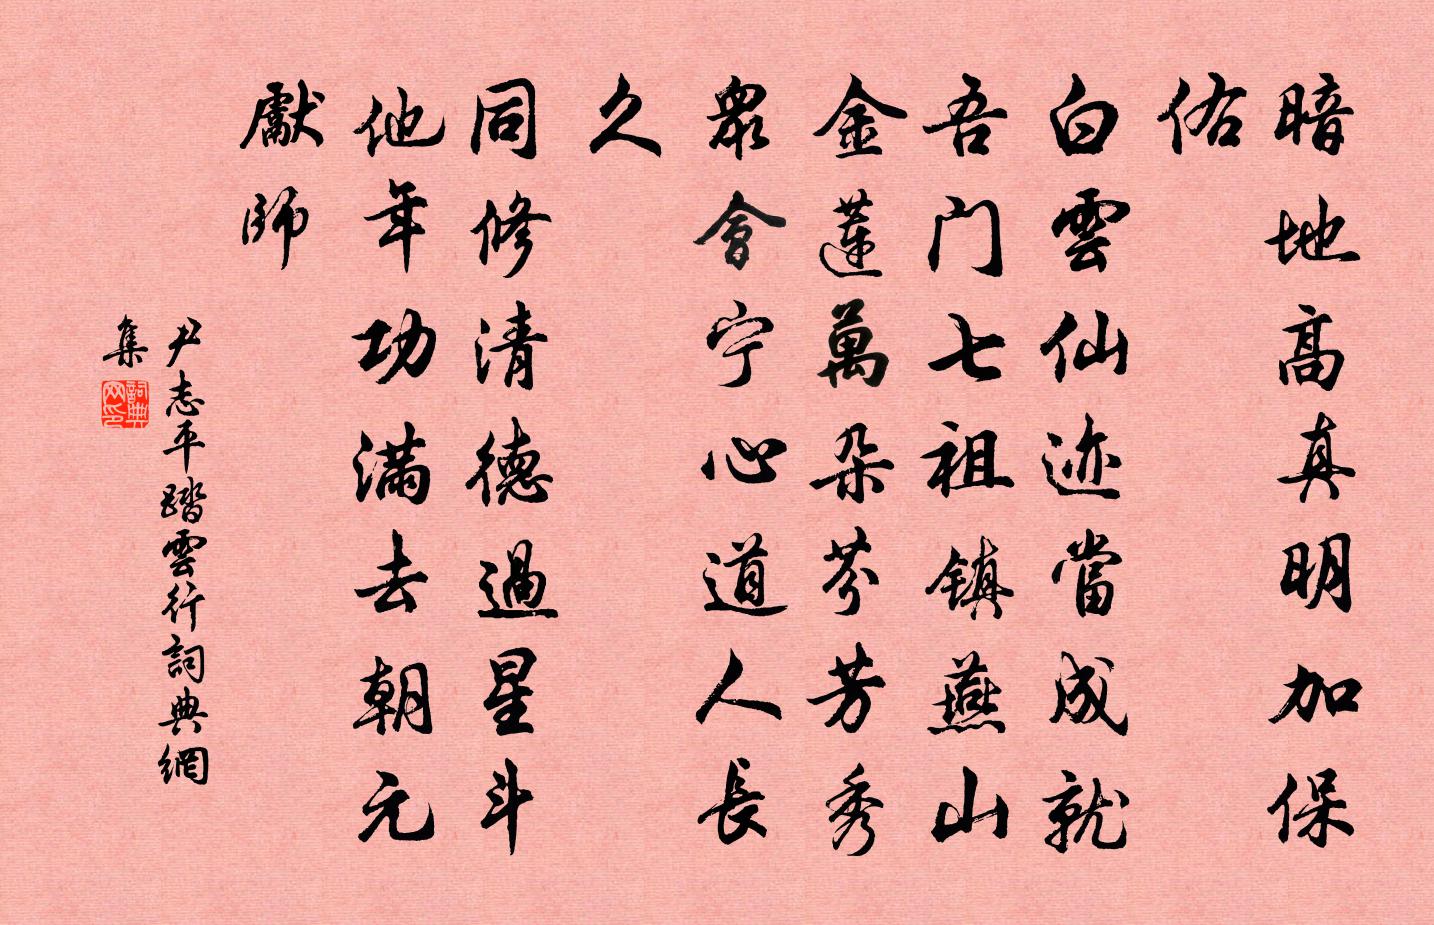 暗地高真明加保
佑
白雲仙迹當成就
吾门七祖镇燕山
金蓮萬朵芬芳秀
眾會宁心道人長
久
同修清德過星斗
他年功满去朝元
獻師
尹志平踏雲行詞典網
集
詞典网印